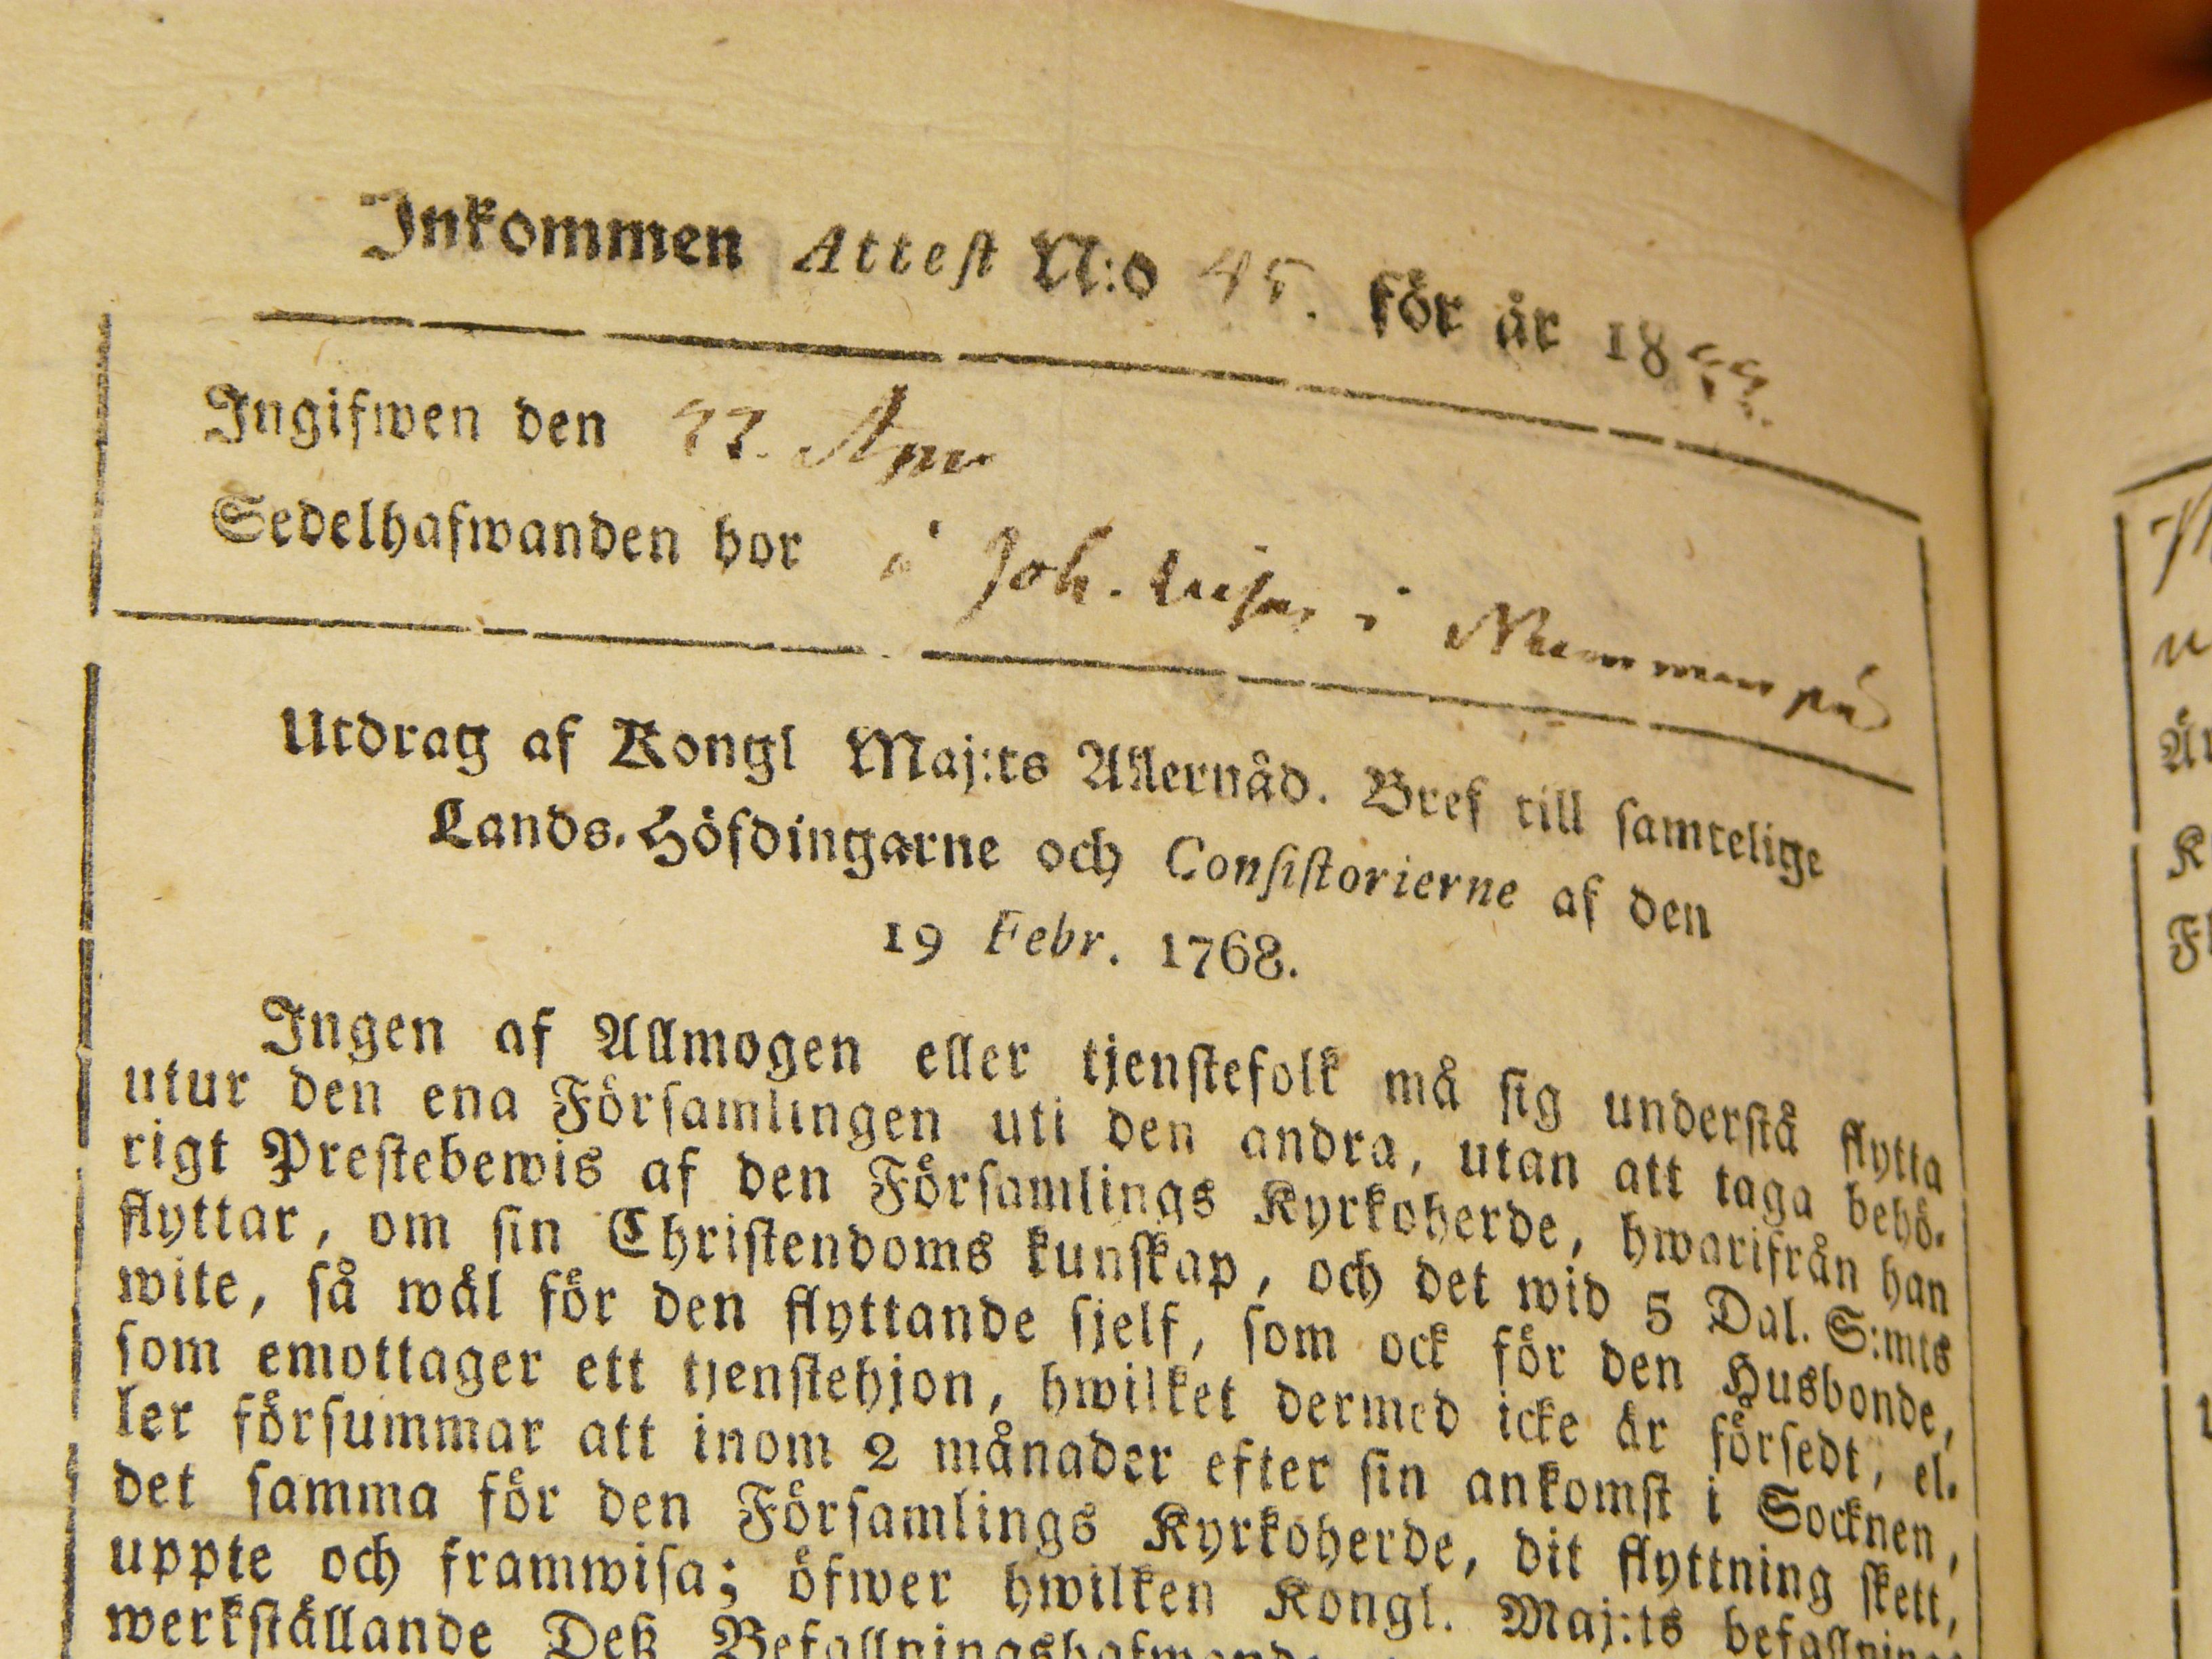 Inkommen Attest N:o 45. för år 18
Ingifwen den
Sedelhafwanden bor i Joh. i
Utdrag af Kongl Maj:ts Allernåd. Bref till samtelige
Lands-Höfdingarne och Consistorierne af den
19 Febr. 1768.
Ingen af Allmogen eller tjenstefolk må sig understå flytta
utur den ena Församlingen uti den andra, utan att taga behö-
rigt Prestebewis af den Församlings Kyrkoherde, hwarifrån han
flyttar, om sin Christendoms kunskap, och det wid 5 Dal. S:mts
wite, så wäl för den flyttande sjelf, som ock för den Husbonde,
som emottager ett tjenstehjon, hwilket dermed icke är försedt, el-
ler försummar att inom 2 månader efter sin ankomst i Socknen,
det samma för den Församlings Kyrkoherde, dit flyttning skett,
uppte och framwisa; öfwer hwilken Kongl. Maj:ts befallning
werkställande Deß Befallningshafwande